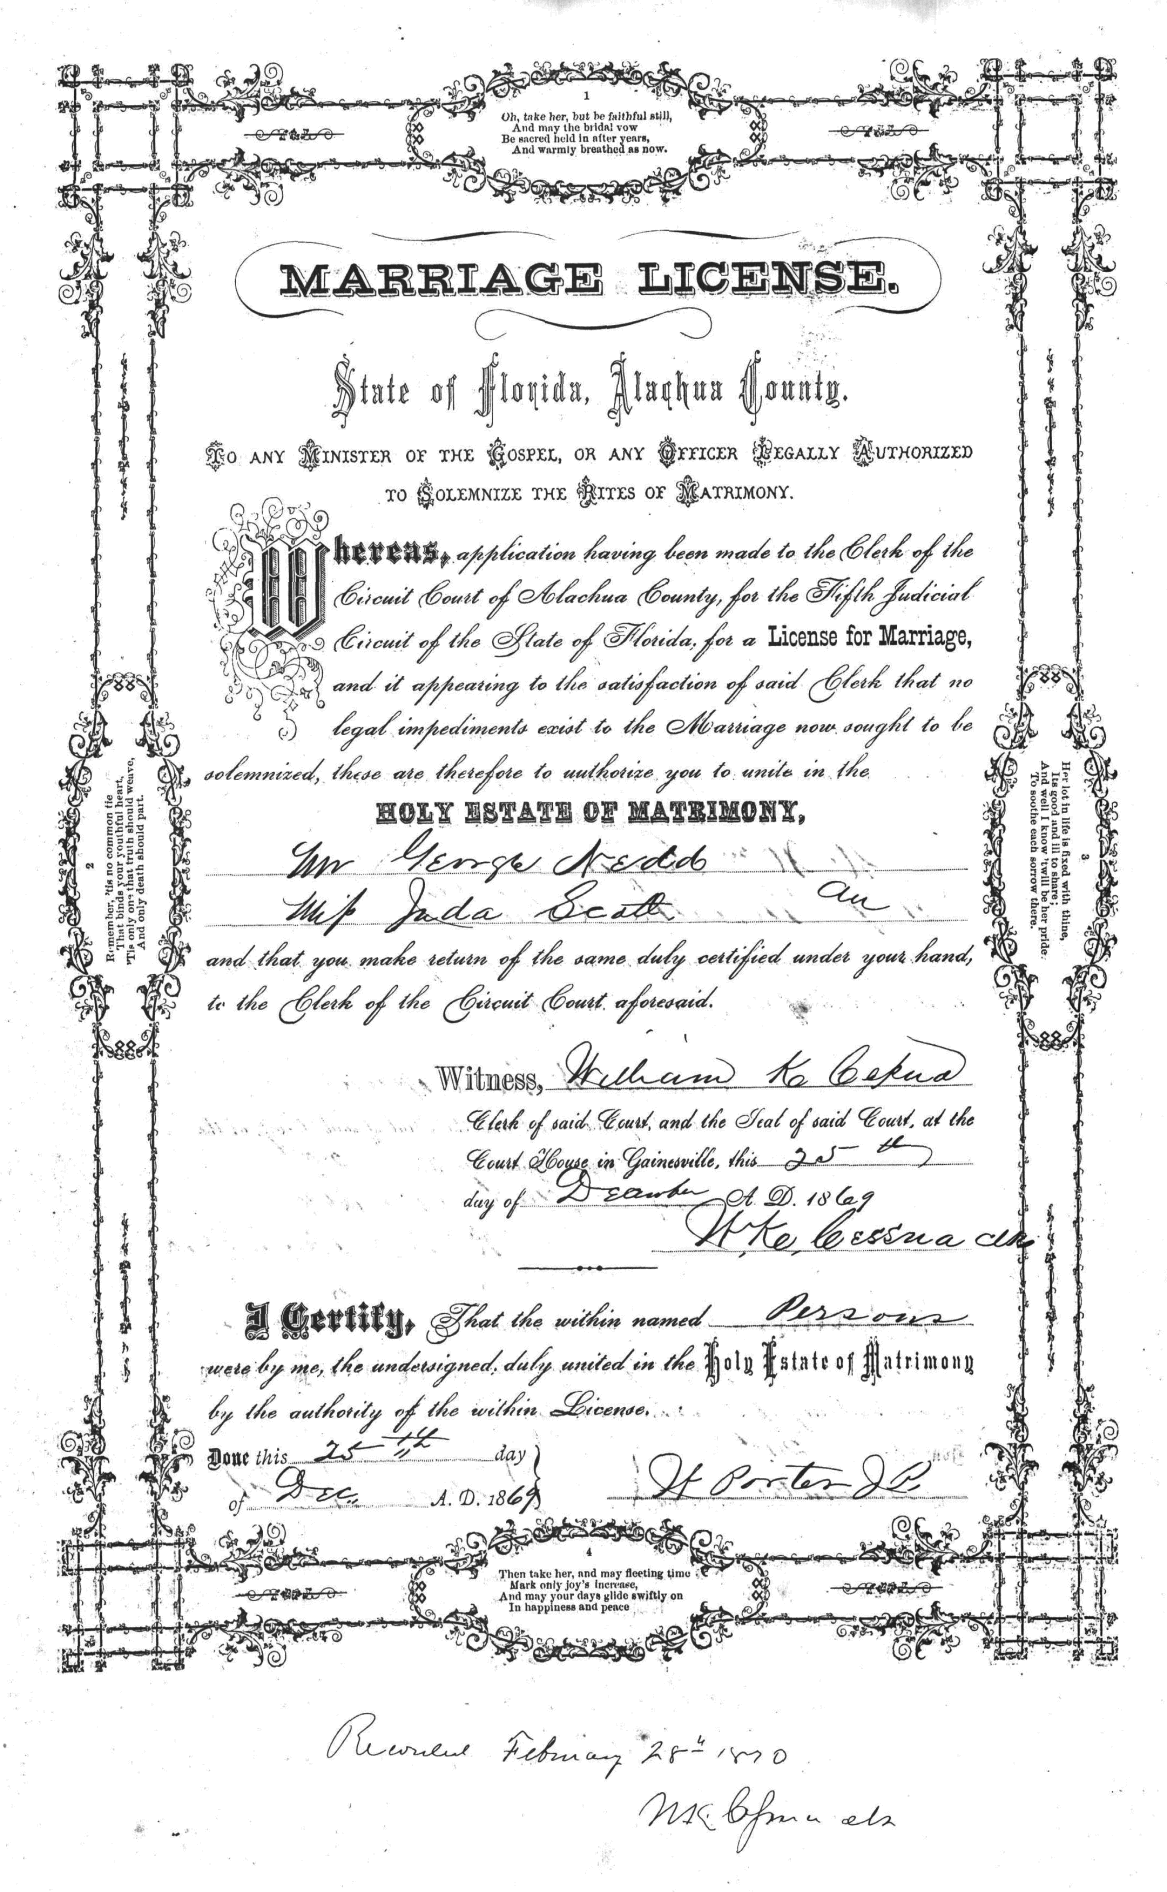 1
Oh, take her, but be faithful still,
And may the bridal vow
Be sacred held in after years,
And warmly breathed as now.
MARRIAGE LICENSE.
State of Florida, Alachua County.
TO ANY MINISTER OF THE GOSPEL, OR ANY OFFICER LEGALLY AUTHORIZED
TO SOLEMNIZE THE RITES OF MATRIMONY.
Whereas, application having been made to the Clerk of the
Circuit Court of Alachua County, for the Fifth Judicial
Circuit of the State of Florida, for a License for Marriage,
and it appearing to the satisfaction of said Clerk that no
legal impediments exist to the Marriage now sought to be
solemnized, these are therefore to authorize you to unite in the
HOLY ESTATE OF MATRIMONY,
Mr George Nedd
Miss Juda Scott
and that you make return of the same duly certified under your hand,
to the Clerk of the Circuit Court aforesaid.
2
Remember, 'tis no common tie
That binds your youthful heart,
'Tis only one that truth should weave,
And only death should part.
3
Her lot in life is fixed with thine,
Its good and ill to share;
And well I know 'twill be her pride
To soothe each sorrow there.
Witness, William K Cessna
Clerk of said Court, and the Seal of said Court, at the
Court House in Gainesville, this 25th
day of December A. D. 1869
W K. Cessna clk
I Certify, That the within named Persons
were by me, the undersigned, duly united in the Holy Estate of Matrimony
by the authority of the within License.
Done this 25th day
of Dec. A. D. 1869
H Porter J P.
4
Then take her, and may fleeting time
Mark only joy's increase,
And may your days glide swiftly on
In happiness and peace
Recorded February 28th 1870
W K. Cessna clk